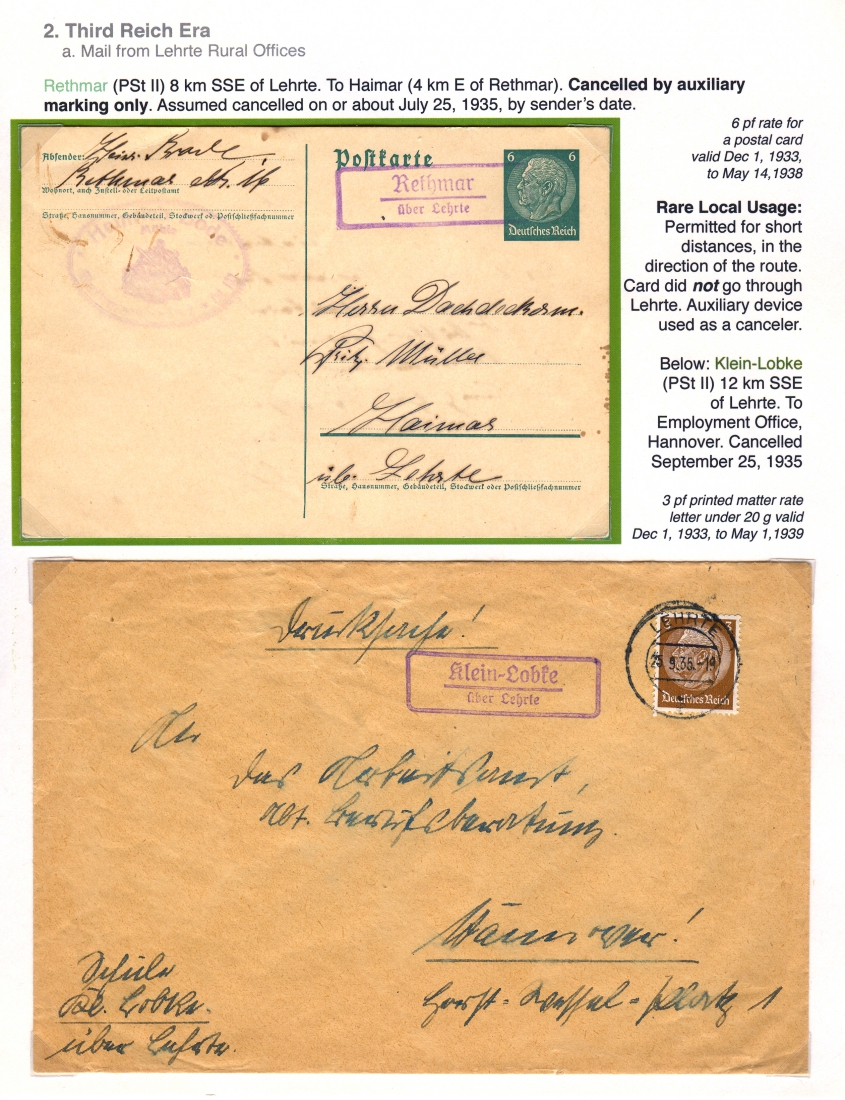 2. Third Reich Era
a. Mail from Lehrte Rural Offices
Rethmar (PSt II) 8 km SSE of Lehrte. To Haimar (4 km E of Rethmar). Cancelled by auxiliary
marking only. Assumed cancelled on or about July 25, 1935, by sender's date.
6 pf rate for
a postal card
valid Dec 1, 1933,
to May 14,1938
Rare Local Usage:
Permitted for short
distances, in the
direction of the route.
Card did not go through
Lehrte. Auxiliary device
used as a canceler.
Below: Klein-Lobke
(PSt II) 12 km SSE
of Lehrte. To
Employment Office,
Hannover. Cancelled
September 25, 1935
3 pf printed matter rate
letter under 20 g valid
Dec 1, 1933, to May 1,1939
Absender:
Rethmar
Wohnort, auch Zustell- oder Leitpostamt
Straße, Hausnummer, Gebäudeteil, Stockwerk od. Postschließfachnummer
Postkarte
Rethmar
über Lehrte
6 6
Deutsches Reich
Herrn Dachdeckerm.
Fritz Müller
Haimar
üb. Lehrte
Straße, Hausnummer, Gebäudeteil, Stockwerk oder Postschließfachnummer
Drucksache!
Klein-Lobke
über Lehrte
LEHRTE
25.9.35.-19
3
Deutsches Reich
An
das Arbeitsamt,
Abt. Berufsberatung.
Hannover!
Horst-Wessel-Platz 1
Schule
Kl. Lobke.
über Lehrte.